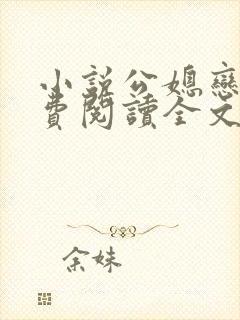 小說公媳戀
費閱讀全文
余姝